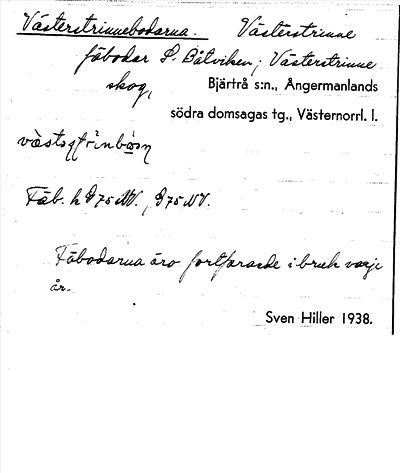 Västerstrinnebodarna. Västerstrinne
fäbodar S. Båtviken; Västerstrinne
skog,
Bjärtrå s:n., Ångermanlands
södra domsagas tg., Västernorrl. l.
Fäb.
Fäbodarna äro fortfarande i bruk varje
år.
Sven Hiller 1938.